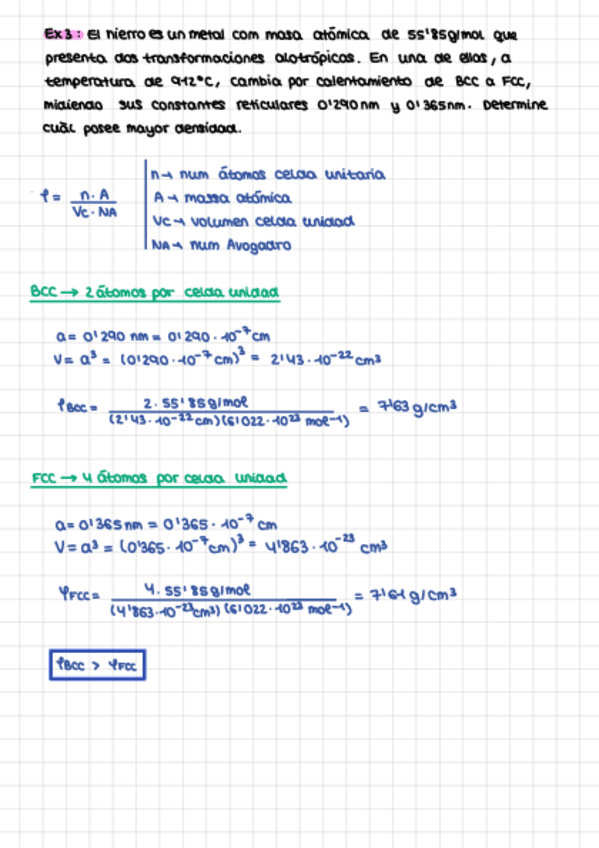 Ex3: El hierro es un metal com masa atómica de 55'85g/mol que
presenta dos transformaciones alotrópicas. En una de ellas, a
temperatura de 912°C, cambia por calentamiento de BCC a FCC,
midiendo sus constantes reticulares 0'290nm y 0'365nm. Determine
cuál posee mayor densidad.
ρ = n·A / Vc·NA
n→ num átomos celda unitaria
A→ massa atómica
Vc→ volumen celda unidad
NA→ num Avogadro
BCC → 2 átomos por celda unidad
a= 0'290 nm = 0'290 · 10⁻⁷ cm
V= a³ = (0'290 · 10⁻⁷ cm)³ = 2'43 · 10⁻²² cm³
ρBCC = 2 · 55'85g/mol / (2'43 · 10⁻²² cm)(6'022 · 10²³ mol⁻¹) = 7'63 g/cm³
FCC → 4 átomos por celda unidad
a= 0'365nm = 0'365 · 10⁻⁷ cm
V= a³ = (0'365 · 10⁻⁷ cm)³ = 4'863 · 10⁻²³ cm³
ρFCC = 4 · 55'85g/mol / (4'863·10⁻²³cm³)(6'022 · 10²³ mol⁻¹) = 7'61 g/cm³
ρBCC > ρFCC